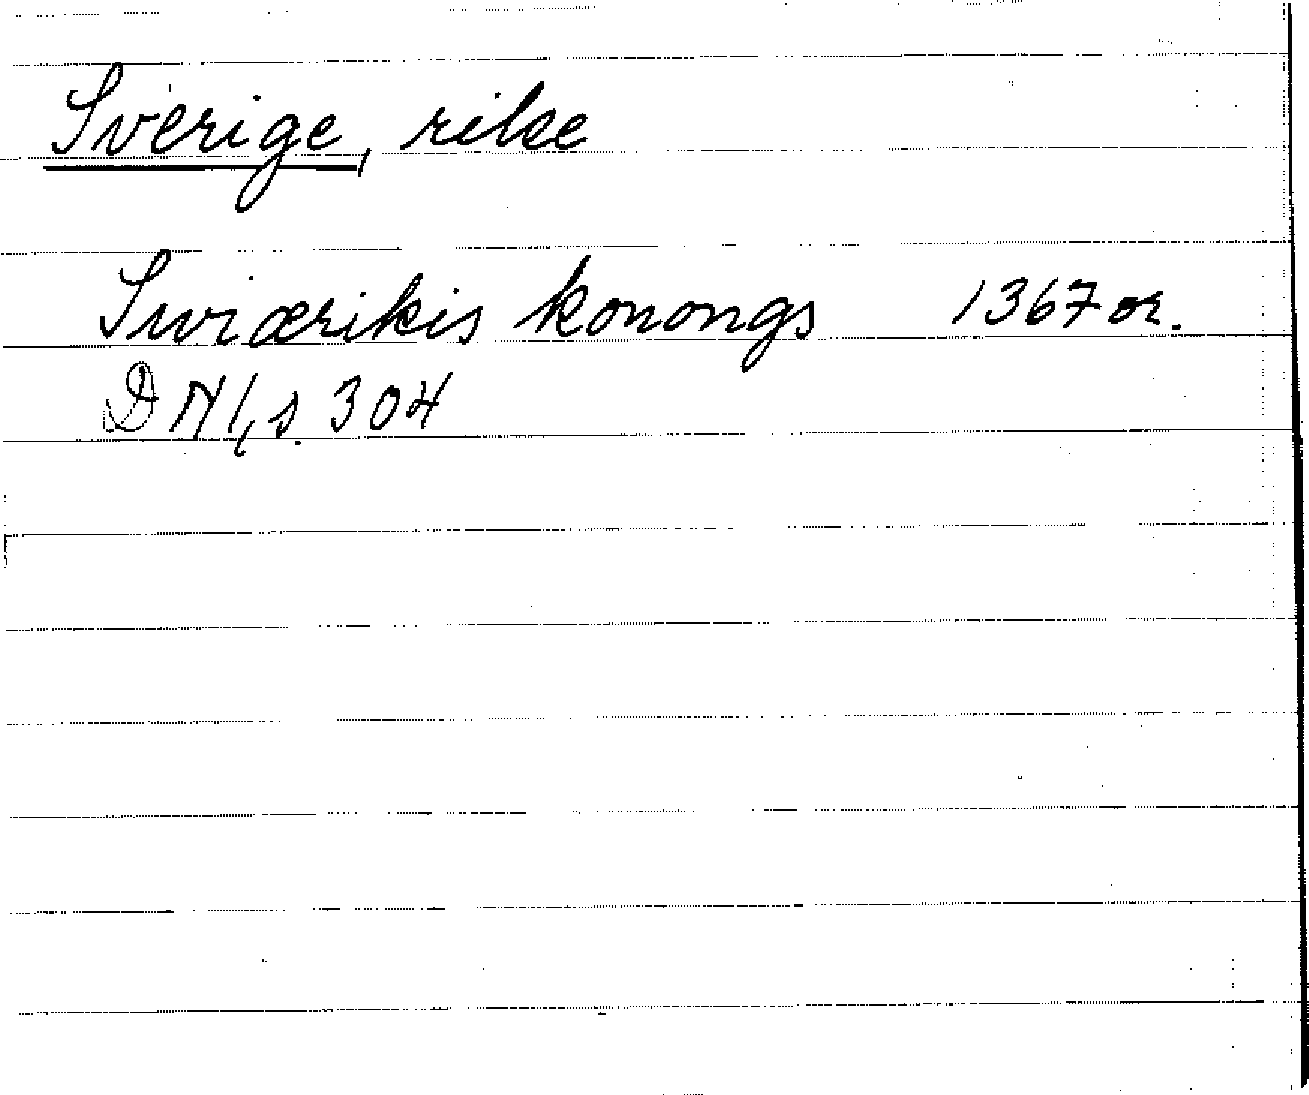 Sverige, rike
Swiærikis konongs 1367 or.
DN 1, s. 304